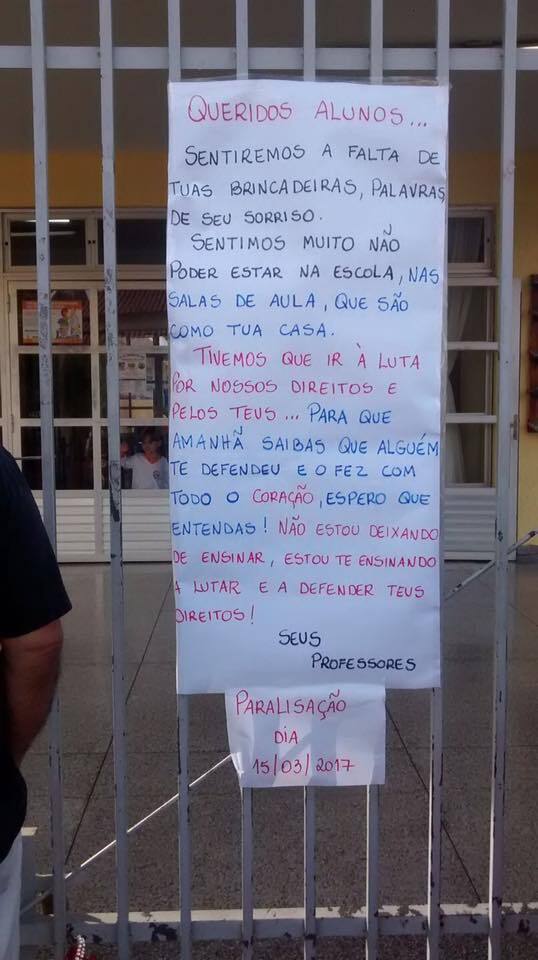 QUERIDOS ALUNOS...
SENTIREMOS A FALTA DE
TUAS BRINCADEIRAS, PALAVRAS,
DE SEU SORRISO.
SENTIMOS MUITO NÃO
PODER ESTAR NA ESCOLA, NAS
SALAS DE AULA, QUE SÃO
COMO TUA CASA.
TIVEMOS QUE IR À LUTA
POR NOSSOS DIREITOS E
PELOS TEUS... PARA QUE
AMANHÃ SAIBAS QUE ALGUÉM
TE DEFENDEU E O FEZ COM
TODO O CORAÇÃO, ESPERO QUE
ENTENDAS! NÃO ESTOU DEIXANDO
DE ENSINAR, ESTOU TE ENSINANDO
A LUTAR E A DEFENDER TEUS
DIREITOS!
SEUS
PROFESSORES
PARALISAÇÃO
DIA
15/03/2017